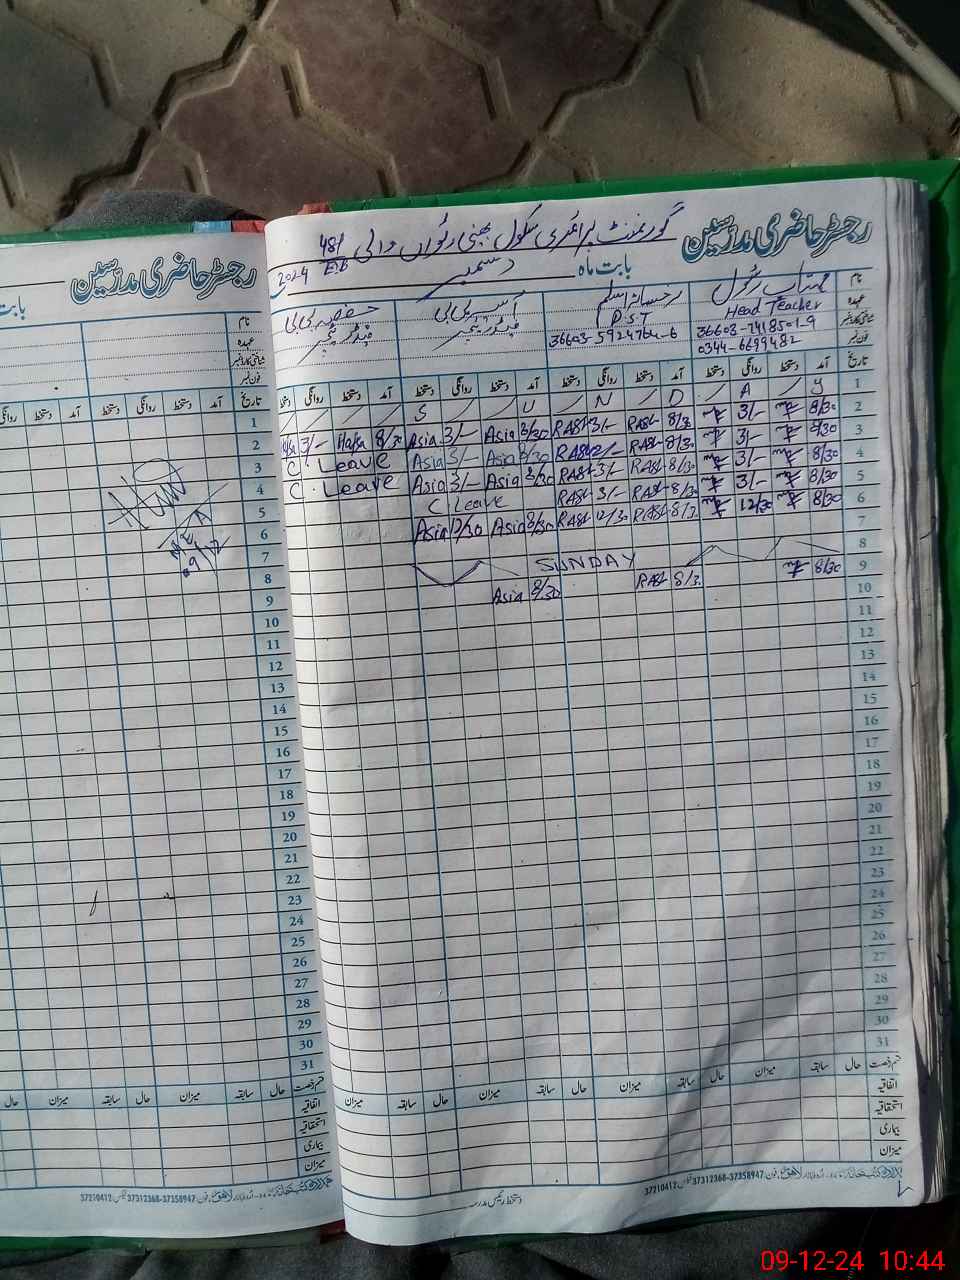 رجسٹر حاضری مدرسین
گورنمنٹ پرائمری سکول بھینی رتواں والی 481 EB
بابت ماہ دسمبر 2024
نام
عہدہ
شناختی کارڈ نمبر
فون نمبر
مہتاب رسول
Head Teacher
36603-7418501-9
0344-6699482
رخسانہ اسلم
P.S.T
36603-5924764-6
آسیہ بی بی
حفصہ بی بی
تاریخ آمد دستخط روانگی دستخط آمد دستخط روانگی دستخط آمد دستخط روانگی دستخط روانگی
1 Y A D N U S
2 8/30 3/- 8/30 RASH 3/- RASH 8/30 Asia 3/- Asia 8/30 Hafsa 3/-
3 8/30 3/- 8/30 RASH RASH 8/30 Asia 3/- Asia C. Leave
4 8/30 3/- 8/30 RASH 3/- RASH 8/30 Asia 3/- Asia C. Leave
5 8/30 3/- 8/30 RASH 3/- RASH C Leave
6 8/30 12/30 RASH 12/30 RASH 8/30 Asia 12/30 Asia
7
8 SUNDAY
9 8/30 8/30 RASH 8/30 Asia
10
11
12
13
14
15
16
17
18
19
20
21
22
23
24
25
26
27
28
29
30
31
قسم رخصت حال سابقہ میزان حال سابقہ میزان حال سابقہ میزان حال سابقہ میزان
اتفاقیہ
استحقاقیہ
بیماری
میزان
دستخط رئیس مدرسہ
فون 37358947-37312368 فیکس 37210412
رجسٹر حاضری مدرسین
بابت
نام
عہدہ
شناختی کارڈ نمبر
فون نمبر
تاریخ آمد دستخط روانگی دستخط آمد دستخط روانگی
1
2
3
4
5
6
7
8
9
10
11
12
13
14
15
16
17
18
19
20
21
22
23
24
25
26
27
28
29
30
31
MEA
09/12
قسم رخصت حال سابقہ میزان حال سابقہ میزان حال
اتفاقیہ
استحقاقیہ
بیماری
میزان
فون 37358947-37312368 فیکس 37210412
09-12-24 10:44